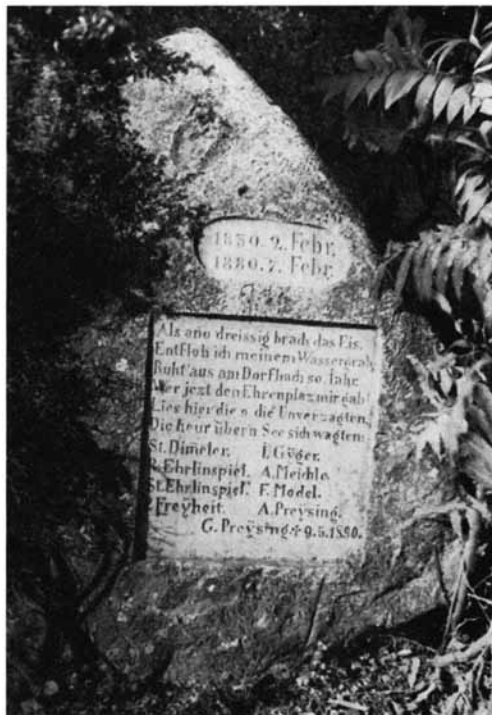 1830. 2. Febr.
1880. 7. Febr.
Als ano dreissig brach das Eis.
Entfloh ich meinem Wassergrab,
Ruht' aus am Dorfbach 50. Jahr.
Wer jezt den Ehrenplaz mir gab?
Lies hier die 9. die Unverzagten,
Die heur übern See sich wagten:
St. Dimeler. I. Gÿger.
R. Ehrlinspiel. A. Meichle.
St. Ehrlinspiel. F. Model.
Freÿheit. A. Preÿsing.
G. Preÿsing + 9.5.1890.